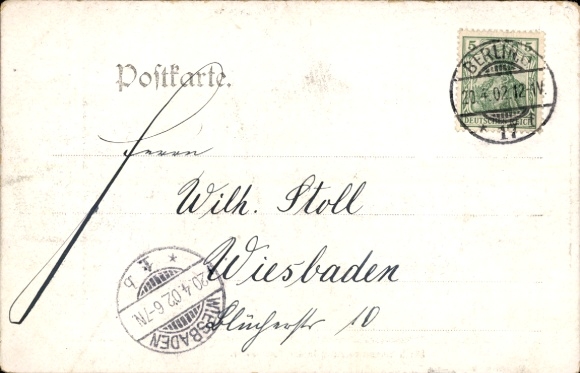 Postkarte.
5 5
DEUTSCHES REICH
BERLIN
20.4.02.12-1V.
* 17
Herrn
Wilh. Stoll
Wiesbaden
Blücherstr 10
* 1. b
20.4.02.6-7N
WIESBADEN